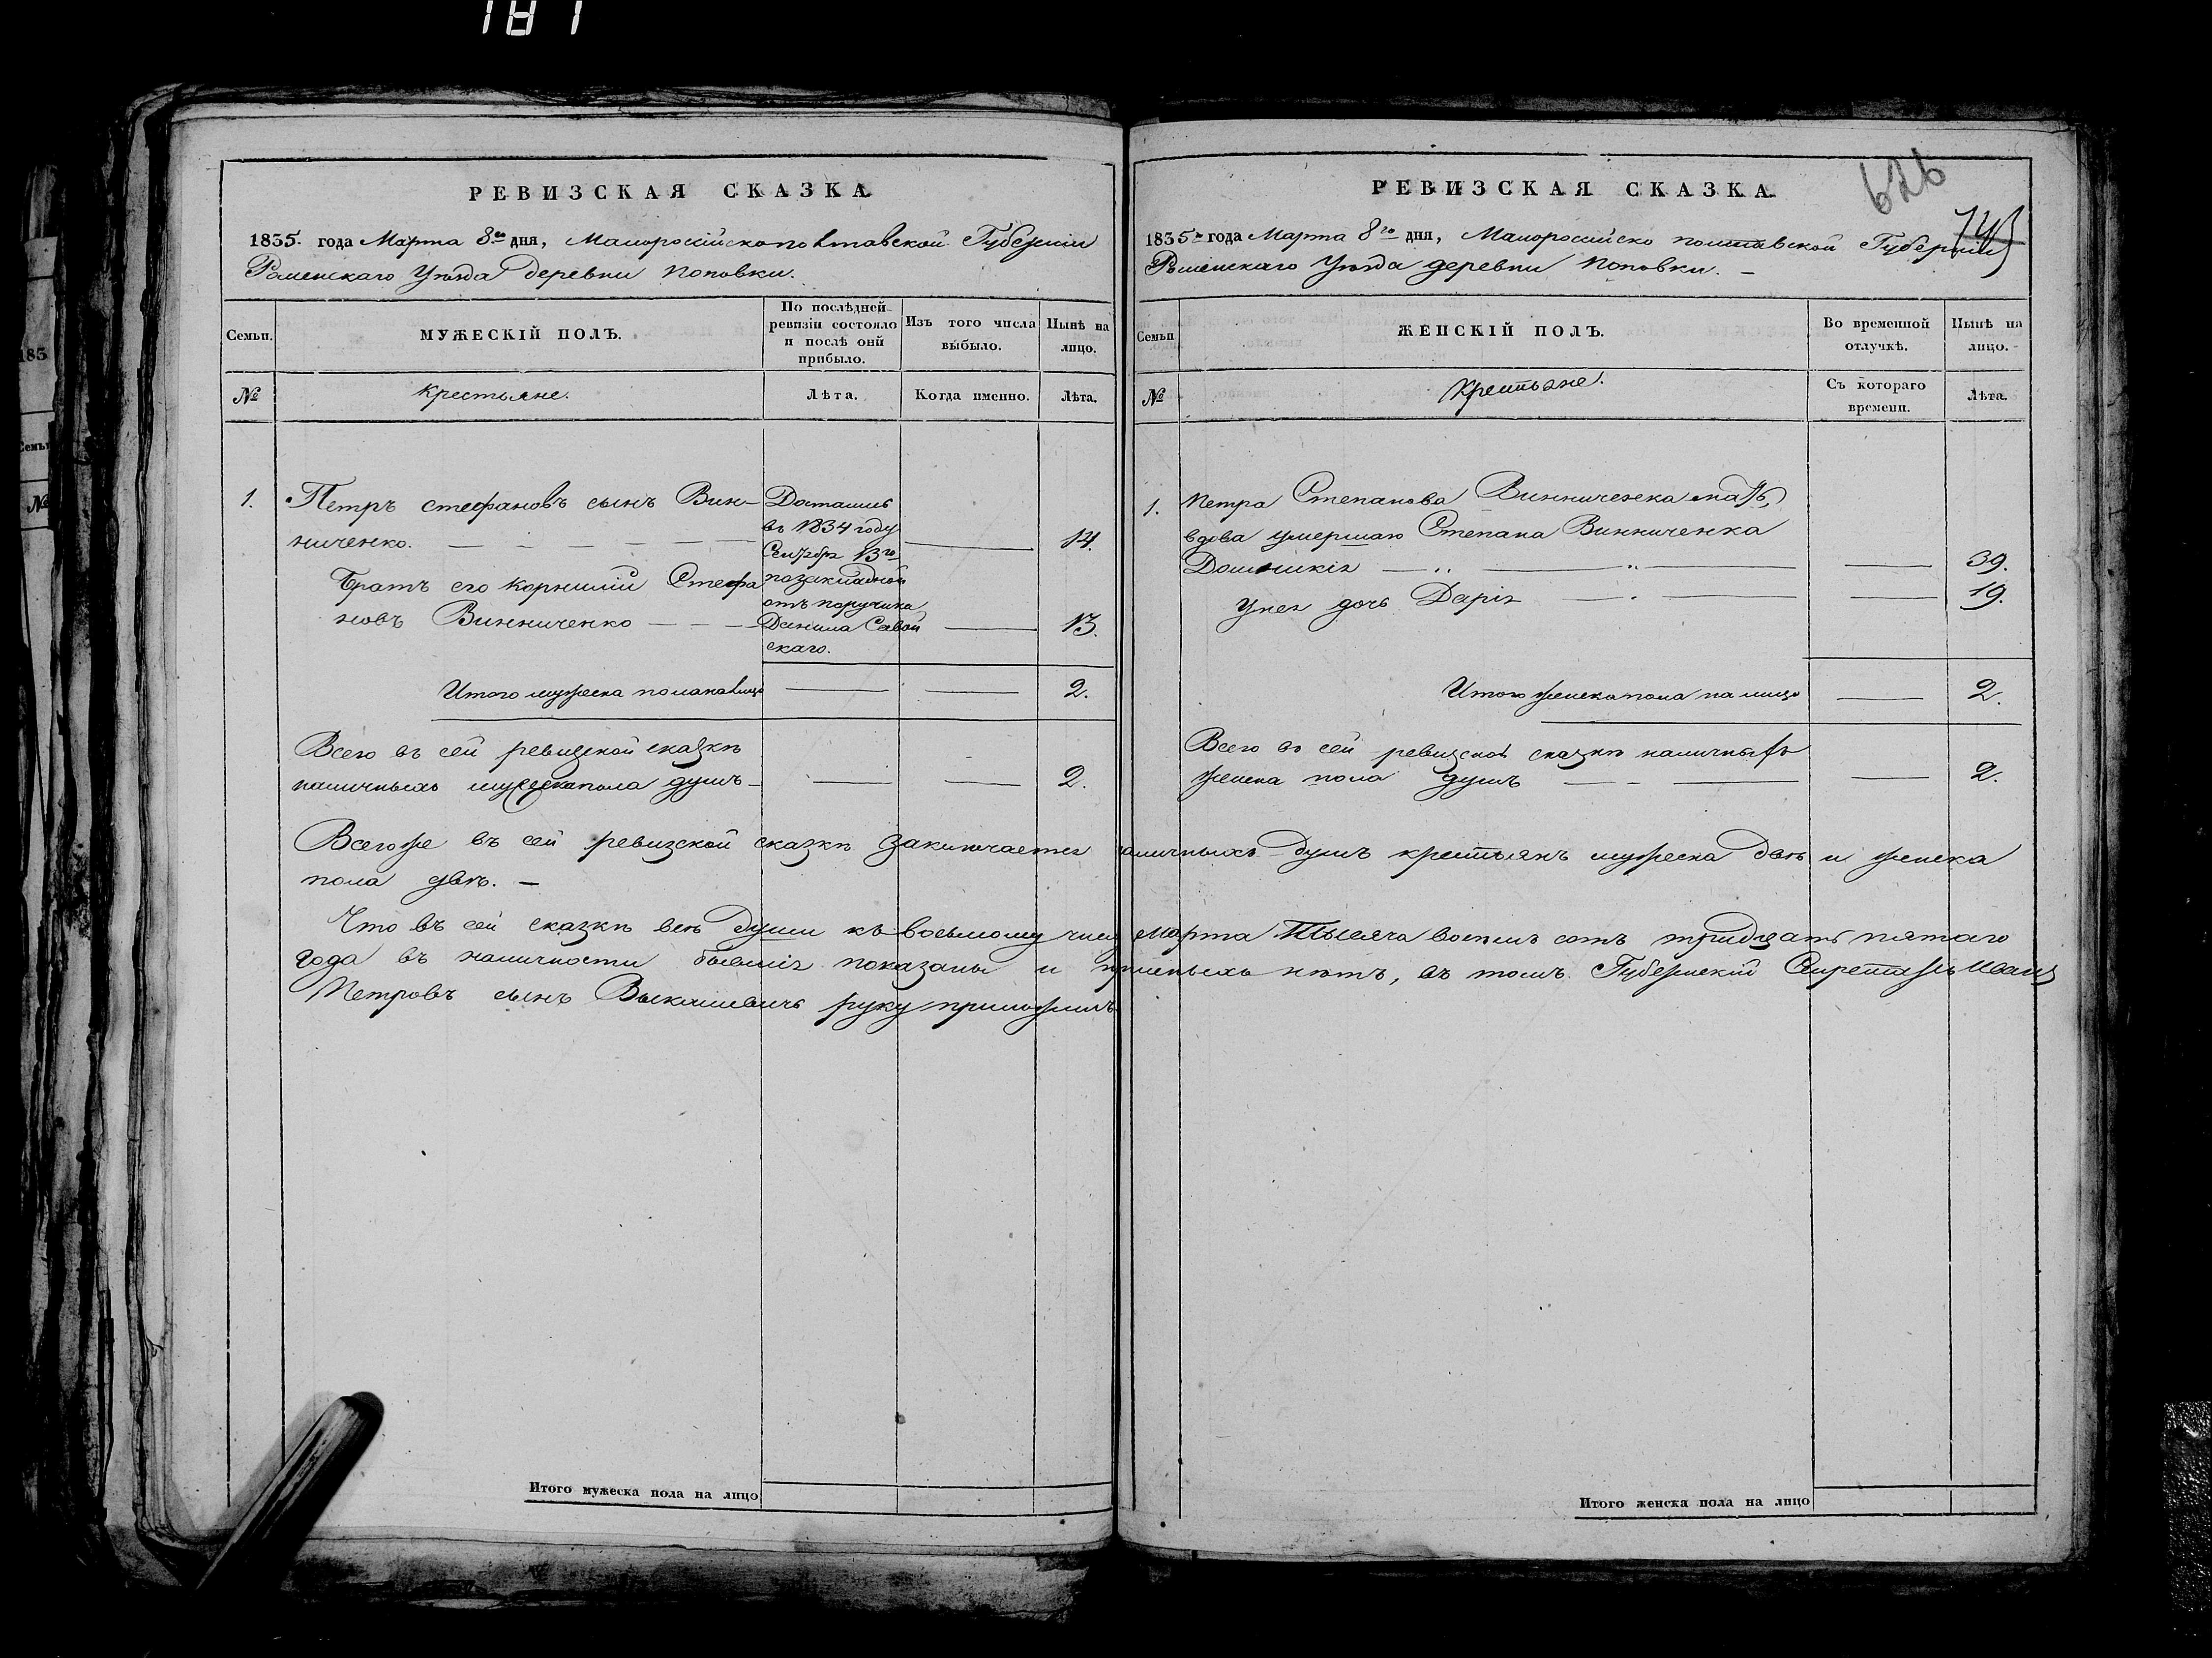 181
РЕВИЗСКАЯ СКАЗКА
1835. года Марта 8го дня, Малоросійскополтавской Губерніи
Роменскаго Уѣзда деревни Поповки.
Семьи.
МУЖЕСКІЙ ПОЛЪ.
По послѣдней ревизіи состояло и послѣ оной прибыло.
Изъ того числа выбыло.
Нынѣ на лицо.
№
Крестьяне.
Лѣта.
Когда именно.
Лѣта.
1. Петръ стефановъ сынъ Вин-
ниченко.
14.
Братъ его Корнилій Стефа
новъ Винниченко
13.
Достались
въ 1834 году
Сентября 13го
позакладной
отъ поручика
Данила Савой
скаго.
Итого мужеска пола на лицо 2.
Всего въ сей ревизской сказкѣ
наличныхъ мужеска пола душъ 2.
РЕВИЗСКАЯ СКАЗКА
626
1835го года Марта 8го дня, Малоросійско полтавской Губерніи
Роменскаго Уѣзда деревни Поповки.
Семьи
ЖЕНСКІЙ ПОЛЪ.
Во временной отлучкѣ.
Нынѣ на лицо.
№
Крестьяне.
Съ котораго времени.
Лѣта.
1. Петра Степанова Винниченка мать,
вдова умершаго Степана Винниченка
39.
унея дочь Дарія 19.
Итого женска пола на лицо 2.
Всего въ сей ревизской сказкѣ наличныхъ
женска пола душъ 2.
Всегоже въ сей ревизской сказкѣ заключается наличныхъ душъ крестьянъ мужеска двѣ и женска
пола двѣ.
Что въ сей сказкѣ всѣ души къ восьмому числу марта тысяча восемь сотъ тридцать пятаго
года въ наличности бывшія показаны и нѣтъ, въ томъ Губернскій Секретарь Иванъ
Петровъ сынъ руку приложилъ
Итого мужеска пола на лицо
Итого женска пола на лицо